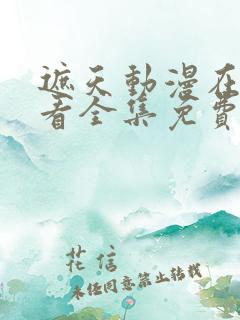 遮天動漫在
看全集免費
花信
未经同意禁止转载